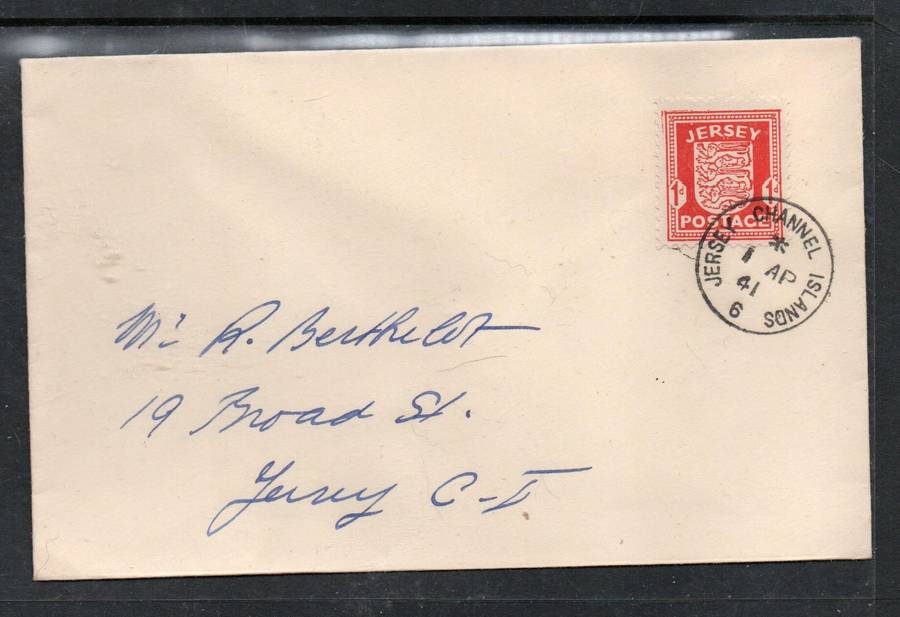 JERSEY
1D 1D
POSTAGE
JERSEY CHANNEL ISLANDS
*
1 AP
41
6
Mr R. Berthelot
19 Broad St.
Jersey C-I